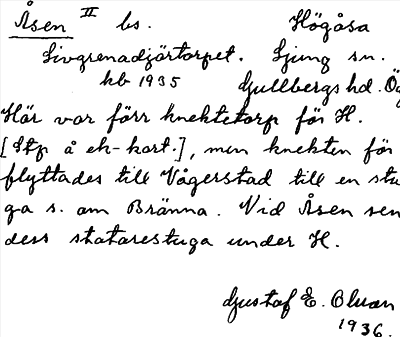 Åsen II bs. Högåsa
Livgrenadjärtorpet. Ljung sn.
kb 1935 Gullbergs hd. Ög
Här var förr knektetorp för H.
[Stp å ek-kart.], men knekten för
flyttades till Vågerstad till en stu
ga s. om Bränna. Vid Åsen sen
dess statarestuga under H.
Gustaf E. Olsson
1936.